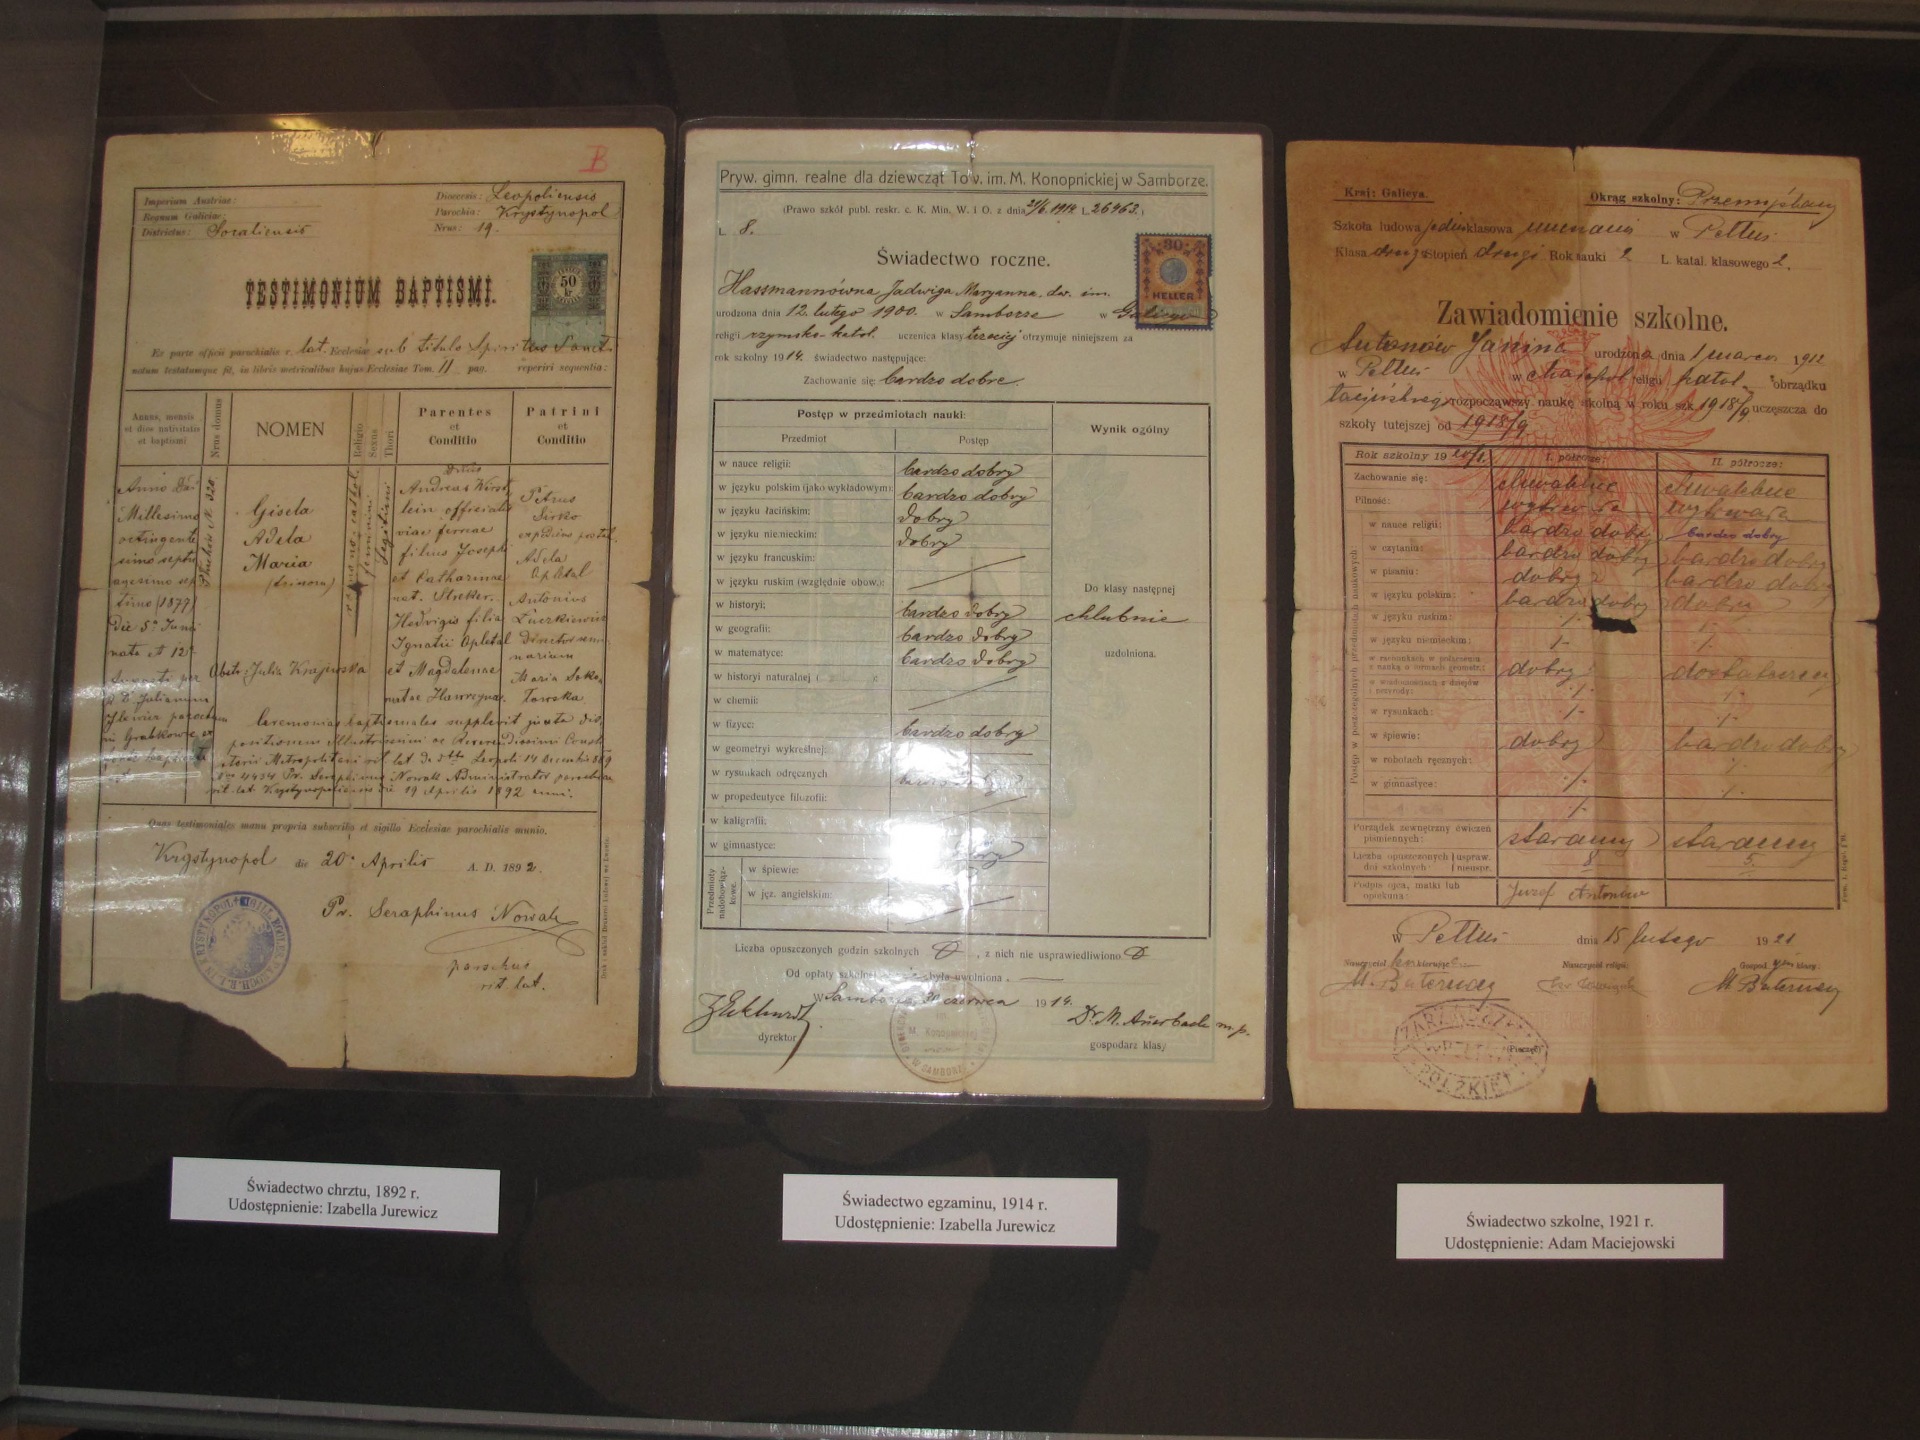 B
Imperium Austriae:
Regnum Galiciae:
Districtus: Socaliensis
Dioecesis: Leopoliensis
Parochia: Krystynopol
Nrus: 19.
50
kr
TESTIMONIUM BAPTISMI.
Ex parte officii parochialis r. lat. Ecclesiae sub titulo Spiritus Sancti
notum testatumque fit, in libris metricalibus hujus Ecclesiae Tom. II pag. reperiri sequentia:
Annus, mensis et dies nativitatis et baptismi
Nrus domus
NOMEN
Religio
Sexus
Thori
Parentes et Conditio
Patrini et Conditio
Anno
Millesimo
octingente
simo septu
agesimo sep
timo (1877)
Die 5ta Junii
nata et 12ta
Gisela
Adela
Maria
(trinom)
romano-cathol.
feminini
Legitimi
Andreas
lein officialis
viae ferreae
filius Josephi
et Catharinae
nat. Streker.
Hedvigis filia
Ignatii Opletal
et Magdalenae
natae
Petrus
Sirko
expeditor postal.
Adela
Opletal
Antonius
Łuczkiewicz
Director semi
narium
Maria Soko
łowska
Obstr: Julia Krajewska
Ceremonias baptismales supplevit juxta dis
positionem Illustrissimi ac Reverendissimi Consi
storii Metropolitani rit. lat. de dtto Leopoli 14 Decembris 889
Nro 4434 Pr. Seraphinus Nowak Administrator parochiae
rit. lat. Krystynopoliensis die 19 Aprilis 1892 anni.
Quas testimoniales manu propria subscribo et sigillo Ecclesiae parochialis munio.
Krystynopol die 20. Aprilis A. D. 1892.
Pr. Seraphinus Nowak
parochus
rit. lat.
Pryw. gimn. realne dla dziewcząt Tow. im. M. Konopnickiej w Samborze.
(Prawo szkół publ. reskr. c. K. Min. W. i O. z dnia 24/6. 1914. L. 26463.)
L. 8.
30
HELLER
Świadectwo roczne.
Hassmannówna Jadwiga Maryanna, dw. im.
urodzona dnia 12. lutego 1900. w Samborze w Galicyi
religii rzymsko-katol. uczenica klasy trzeciej otrzymuje niniejszem za
rok szkolny 1914. świadectwo następujące:
Zachowanie się: bardzo dobre.
Postęp w przedmiotach nauki:
Wynik ogólny
Przedmiot
Postęp
w nauce religii: bardzo dobry
w języku polskim (jako wykładowym): bardzo dobry
w języku łacińskim: dobry
w języku niemieckim: dobry
w języku francuskim:
w języku ruskim (względnie obow.):
w historyi: bardzo dobry
w geografii: bardzo dobry
w matematyce: bardzo dobry
w historyi naturalnej ( ):
w chemii:
w fizyce: bardzo dobry
w geometryi wykreślnej:
w rysunkach odręcznych
w propedeutyce filozofii:
w kaligrafii:
w gimnastyce:
Przedmioty nadobowiązkowe.
w śpiewie:
w jęz. angielskim:
Do klasy następnej
chlubnie
uzdolniona.
Liczba opuszczonych godzin szkolnych 0, z nich nie usprawiedliwiono 0
Od opłaty szkolnej była uwolniona. —
W Samborze, 30 czerwca 1914.
dyrektor
Dr. M. Auerbach m. p.
gospodarz klasy
M. Konopnickiej
W SAMBORZE
Kraj: Galicya.
Okrąg szkolny: Przemyślany
Szkoła ludowa jednoklasowa mieszana w Pełtus
Klasa druga Stopień drugi Rok nauki 2 L. katal. klasowego 2.
Zawiadomienie szkolne.
Antonów Janina urodzona dnia 1 marca 1912
w Pełtus w Małopol religii katol. obrządku
łacińskiego rozpocząwszy naukę szkolną w roku szk. 1918/9 uczęszcza do
szkoły tutejszej od 1918/9
Rok szkolny 1920/1.
I. półrocze:
II. półrocze:
Zachowanie się: chwalebne chwalebne
Pilność: wytrwała wytrwała
Postęp w poszczególnych przedmiotach naukowych:
w nauce religii: bardzo dobry bardzo dobry
w czytaniu: bardzo dobry bardzo dobry
w pisaniu: dobry bardzo dobry
w języku polskim: bardzo dobry dobry
w języku ruskim: -/- -/-
w języku niemieckim: -/- -/-
w rachunkach w połączeniu z nauką o formach geometr.: dobry dostateczny
w wiadomościach z dziejów i przyrody: -/- -/-
w rysunkach: -/- -/-
w śpiewie: dobry bardzo dobry
w robotach ręcznych: -/- -/-
w gimnastyce: -/- -/-
Porządek zewnętrzny ćwiczeń piśmiennych: staranny staranny
Liczba opuszczonych dni szkolnych uspraw. 8 5
nieuspr.
Podpis ojca, matki lub opiekuna: Józef Antonów
w Pełtus dnia 15 lutego 1921
Nauczyciel kierujący:
Nauczyciel religii:
Gospod. klasy:
(Pieczęć)
Świadectwo chrztu, 1892 r.
Udostępnienie: Izabella Jurewicz
Świadectwo egzaminu, 1914 r.
Udostępnienie: Izabella Jurewicz
Świadectwo szkolne, 1921 r.
Udostępnienie: Adam Maciejowski